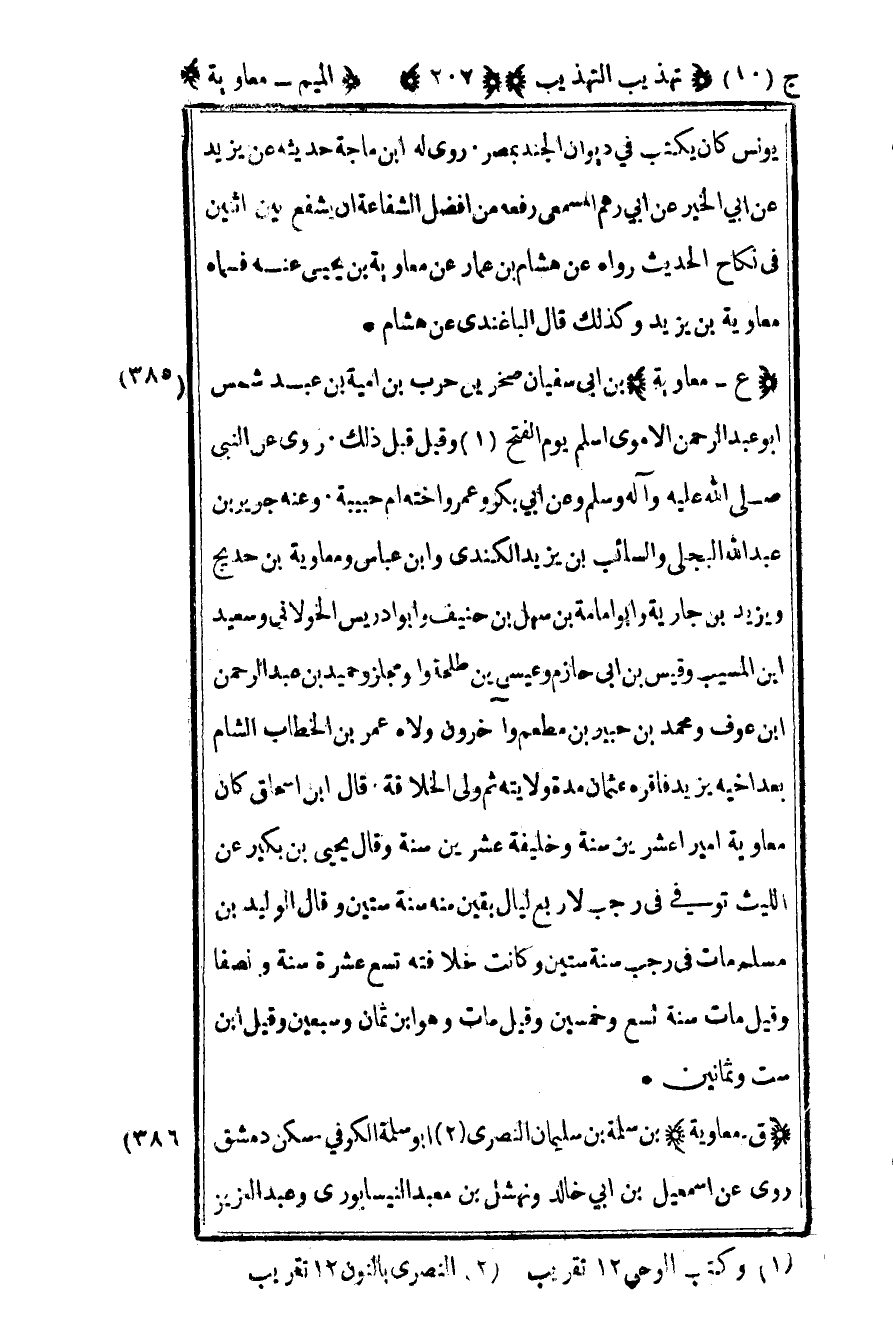 ج (١٠) ﴿ تهذيب التهذيب ﴾ ﴿ ٢٠٧ ﴾ ﴿ الميم ـ معاوية ﴾
يونس كان يكتب في ديوان الجند بمصر ٠ روى له ابن ماجة حديثه عن يزيد
عن ابي الخير عن ابي رهم المسمعى رفعه من افضل الشفاعة ان يشفع بين اثنين
فى نكاح الحديث رواه عن هشام بن عمار عن معاوية بن يحيى عنه فسماه
معاوية بن يزيد وكذلك قال الباغندى عن هشام •
﴿ ع ـ معاوية ﴾ بن ابى سفيان صخر بن حرب بن امية بن عبد شمس (٣٨٥)
ابو عبد الرحمن الاموى اسلم يوم الفتح (١) وقيل قبل ذلك ٠ روى عن النبي
صلى الله عليه وآله وسلم وعن ابي بكر وعمر واخته ام حبيبة ٠ وعنه جرير بن
عبد الله البجلي والسائب بن يزيد الكندى وابن عباس ومعاوية بن حديج
ويزيد بن جارية وابو امامة بن سهل بن حنيف وابو ادريس الخولاني وسعيد
ابن المسيب وقيس بن ابى حازم وعيسى بن طلحة وا ومجلز وحميد بن عبد الرحمن
ابن عوف ومحمد بن جبير بن مطعم وا خرون ولاه عمر بن الخطاب الشام
بعد اخيه يزيد فاقره عثمان مدة ولايته ثم ولى الخلافة ٠ قال ابن اسحاق كان
معاوية اميرا عشرين سنة وخليفة عشرين سنة وقال يحيى بن بكير عن
الليث توفي فى رجب لاربع ليال بقين منه سنة ستين وقال الوليد بن
مسلم مات فى رجب سنة ستين وكانت خلافته تسع عشرة سنة ونصفا
وقيل مات سنة تسع وخمسين وقيل مات وهو ابن ثمان وسبعين وقيل ابن
ست وثمانين •
﴿ ق ـ معاوية ﴾ بن سلمة بن سليمان النصرى (٢) ابو سلمة الكوفي سكن دمشق ٣٨٦)
روى عن اسمعيل بن ابي خالد ونهشل بن معبد النيسابورى وعبد العزيز
(١) وكتب الوحي ١٢ تقريب (٢) النصرى بالنون ١٢ تقريب